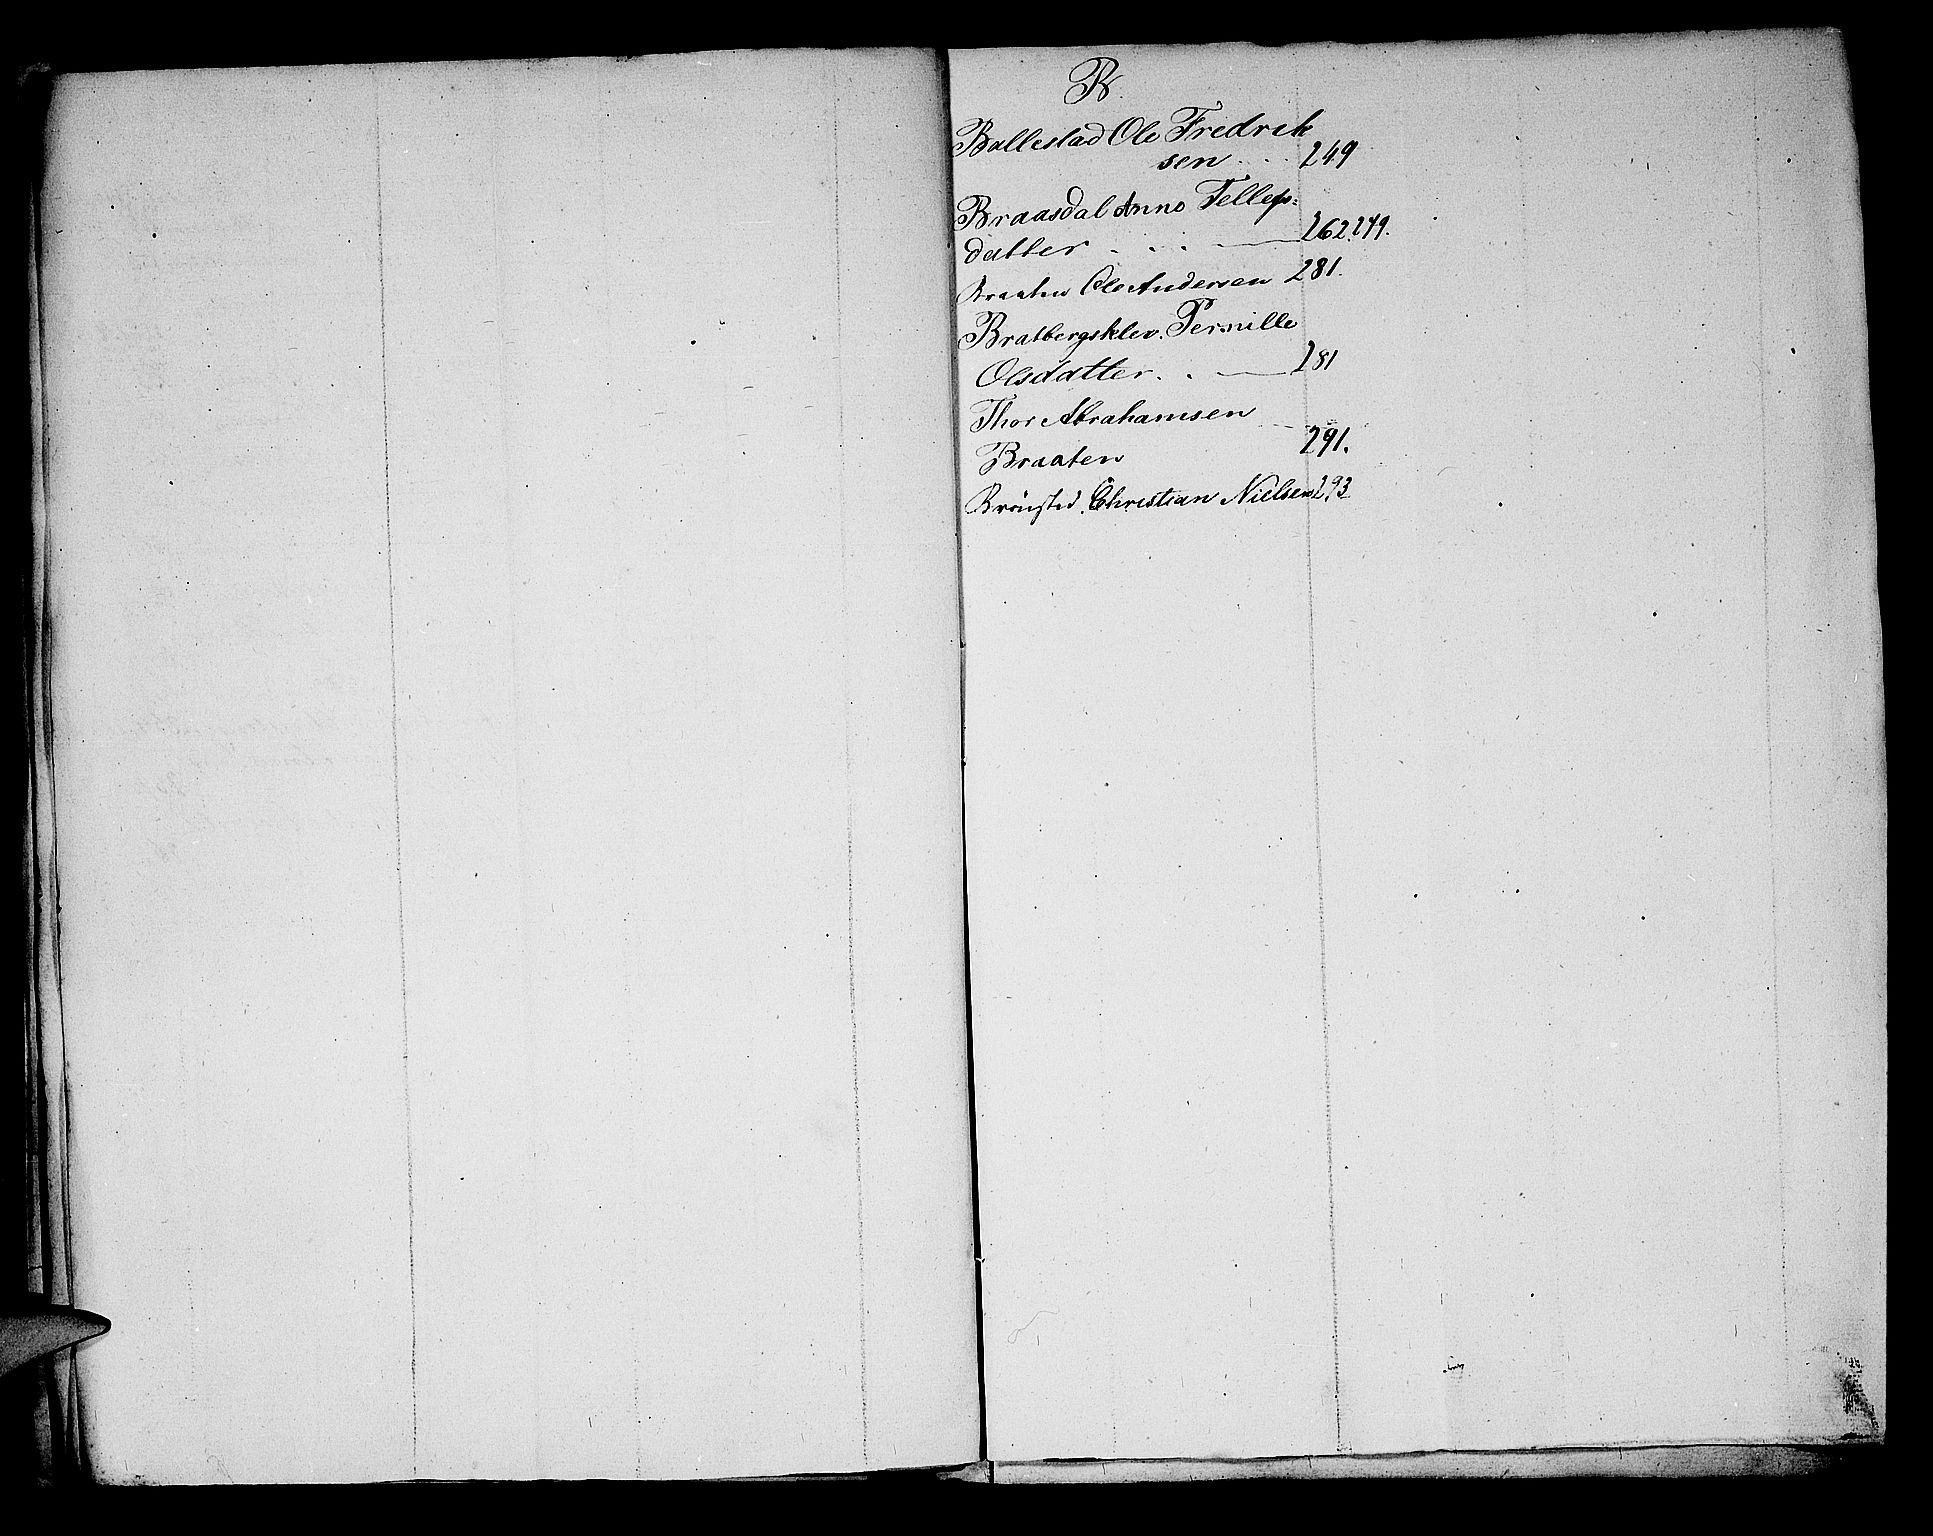 B.
Ballestad Ole Fredrik
sen . . . 249
Braasdal Anne Tellefs=
datter . . . . 262.279.
Braaten Ole Andersen 281.
Bratbergsklev. Pernille
Olsdatter. . 281
Thor Abrahamsen
Braaten 291.
Brönsted. Christian Nielsen 293